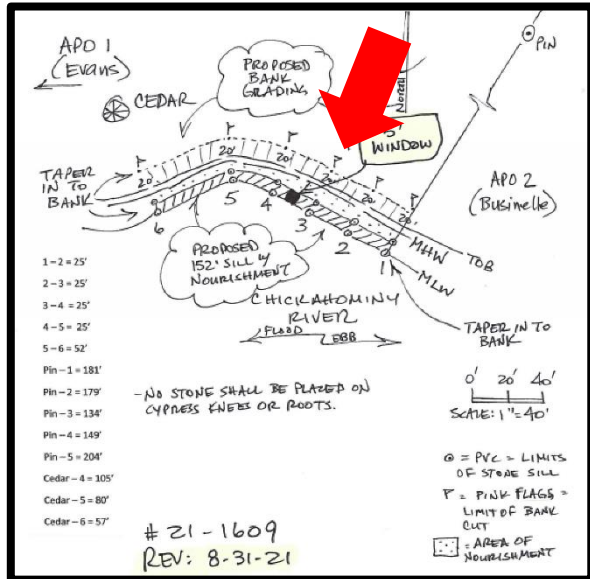 APO 1
(Evans)
CEDAR
PROPOSED
BANK
GRADING
WINDOW
PIN
APO 2
(Businelle)
TAPER
IN TO
BANK
20'
20'
20'
20'
20'
6
5
4
3
2
1
MHW
TOB
MLW
PROPOSED
152' SILL W/
NOURISHMENT
CHICKAHOMINY
RIVER
FLOOD
EBB
TAPER IN TO
BANK
1-2 = 25'
2-3 = 25'
3-4 = 25'
4-5 = 25'
5-6 = 52'
Pin-1 = 181'
Pin-2 = 179'
Pin-3 = 134'
Pin-4 = 149'
Pin-5 = 204'
Cedar-4 = 105'
Cedar-5 = 80'
Cedar-6 = 57'
-NO STONE SHALL BE PLACED ON
CYPRESS KNEES OR ROOTS.
0' 20' 40'
SCALE: 1"=40'
= PVC = LIMITS
OF STONE SILL
= PINK FLAGS =
LIMIT OF BANK
CUT
= AREA OF
NOURISHMENT
# 21-1609
REV: 8-31-21